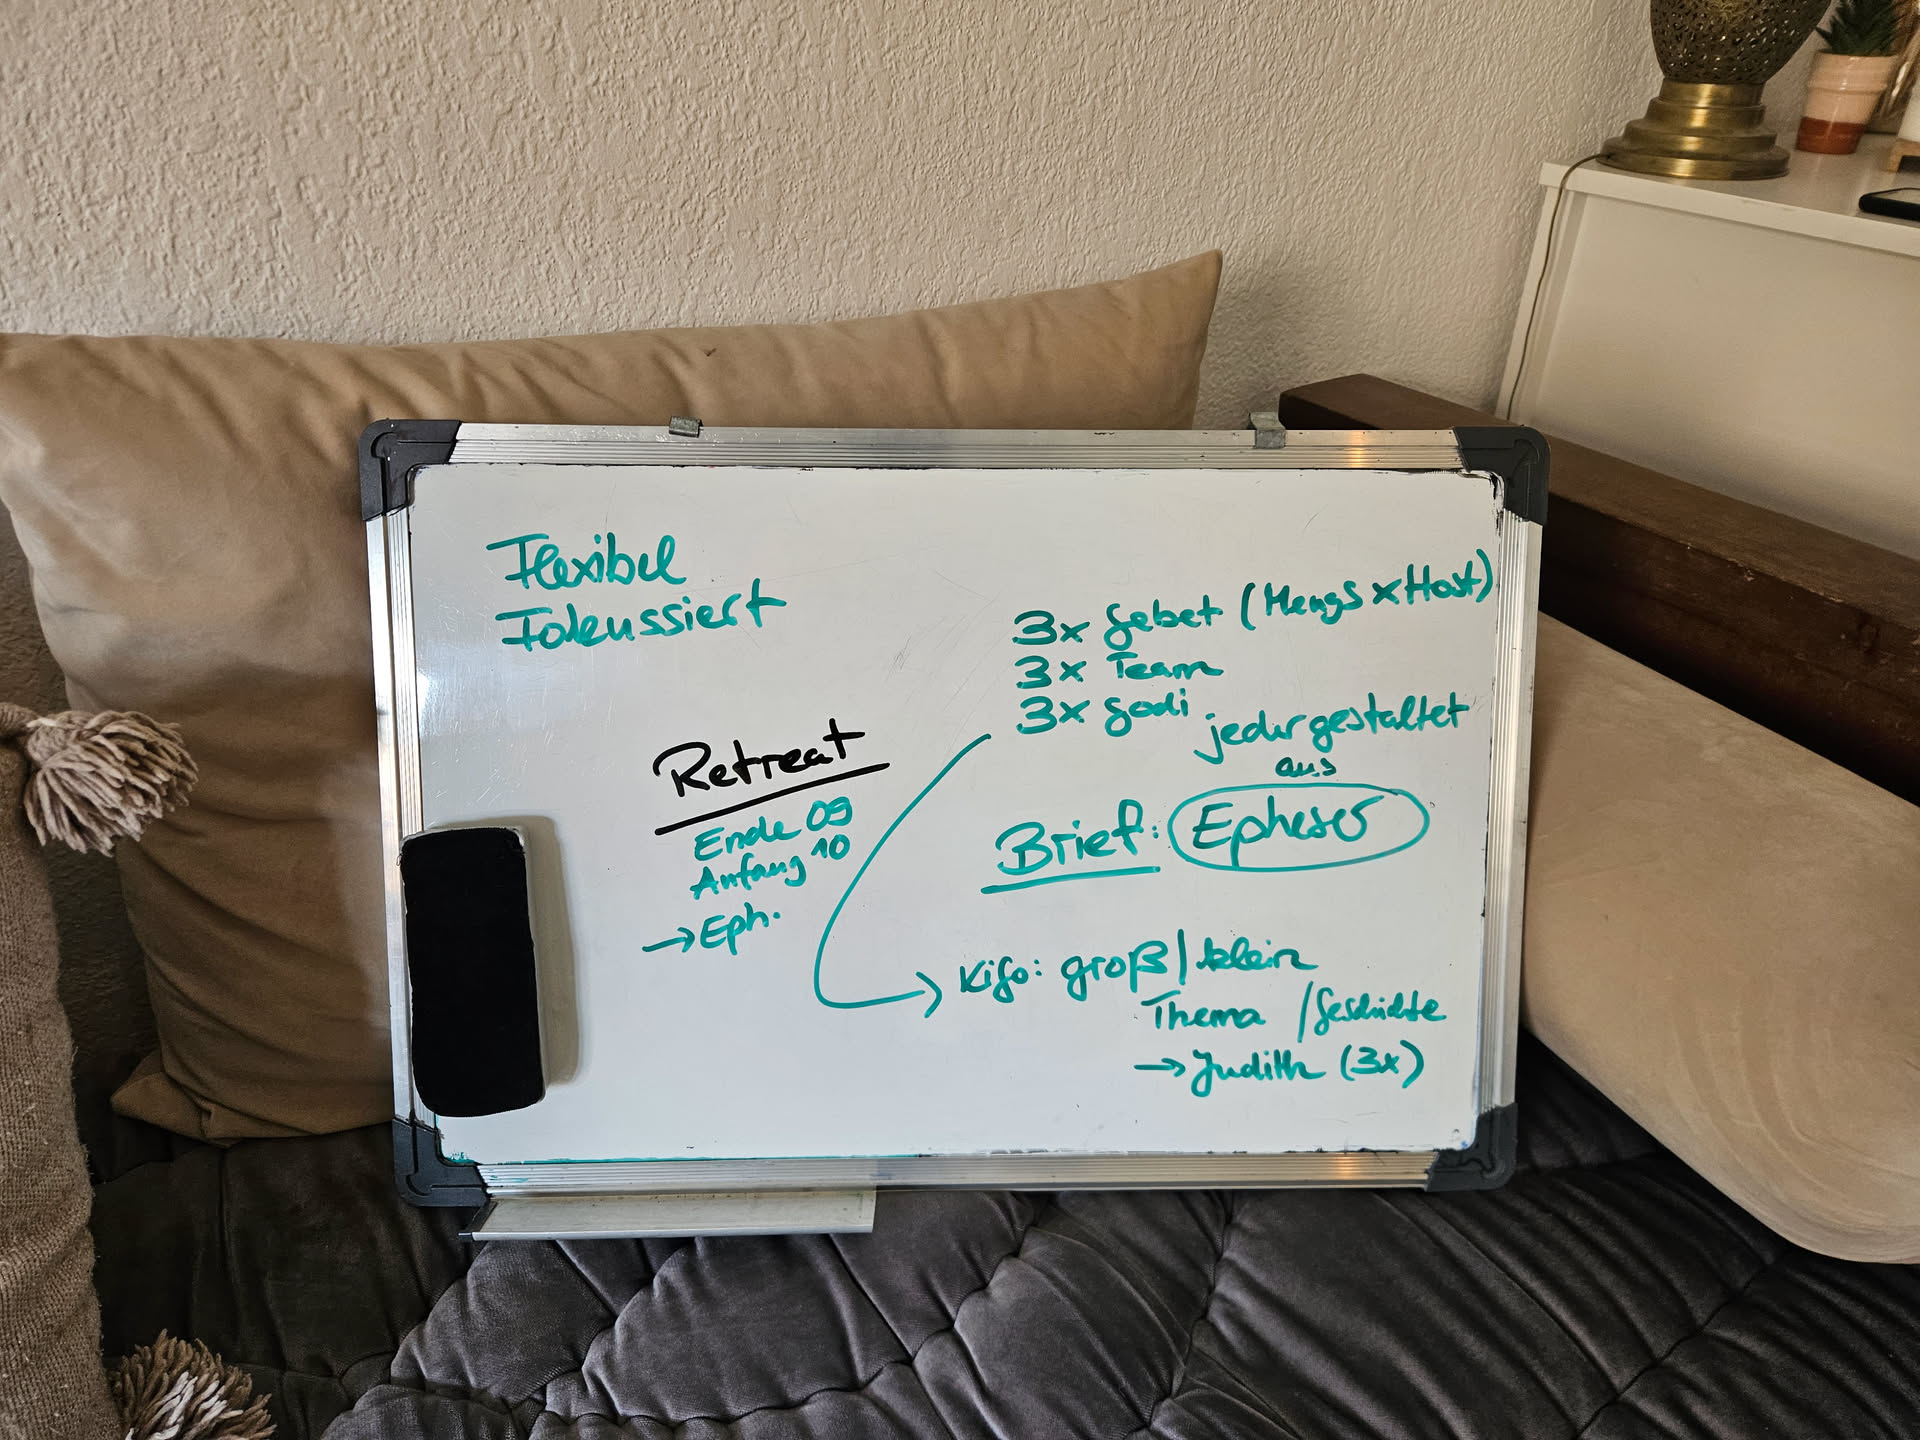 Flexibel
Fokussiert
Retreat
Ende 09
Anfang 10
→ Eph.
3x Gebet (Mengs x Host)
3x Team
3x Godi
jeder gestaltet
aus
Brief: Epheser
Kigo: groß / klein
Thema / Geschichte
→ Judith (3x)